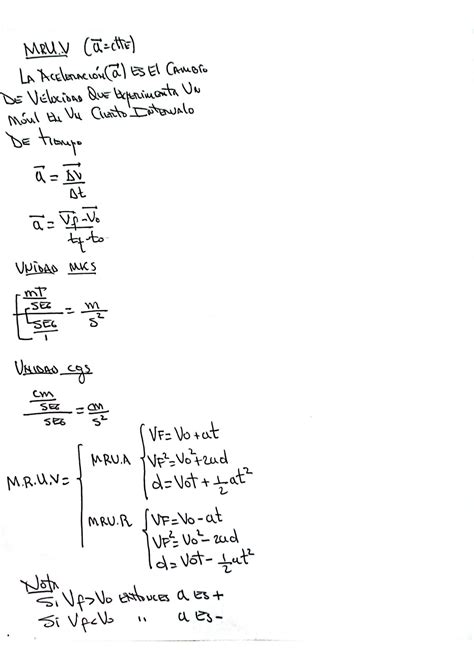 M.R.U.V (a⃗=cttE)
LA Aceleración (a⃗) ES El CAmbio
DE Velocidad Que Experimenta Un
móvil En Un Cierto Intervalo
DE tiempo
a⃗ = ΔV⃗/Δt
a⃗ = V⃗f-V⃗o/tf-to
UNIDAD MKS
mT/SEG/SEG/1 = m/s²
UNIDAD cgs
cm/SEG/SEG = cm/s²
M.R.U.V=
MRU.A
VF=Vo+at
VF²=Vo²+2ad
d=Vot+1/2at²
MRU.R
VF=Vo-at
VF²=Vo²-2ad
d=Vot-1/2at²
Nota
Si Vf>Vo ENtoNCES a ES +
Si Vf<Vo " a ES -